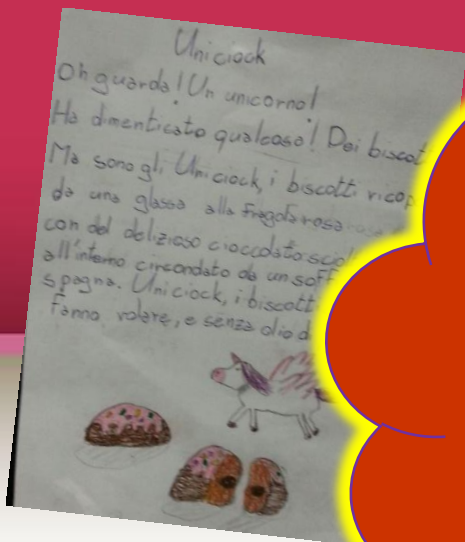 Uniciock
Oh guarda! Un unicorno!
Ha dimenticato qualcosa! Dei biscot
Ma sono gli Uniciock, i biscotti ricop
da una glassa alla fragola rosa
con del delizioso cioccolato sciol
all'interno circondato da un soff
spagna. Uniciock, i biscott
fanno volare, e senza olio d